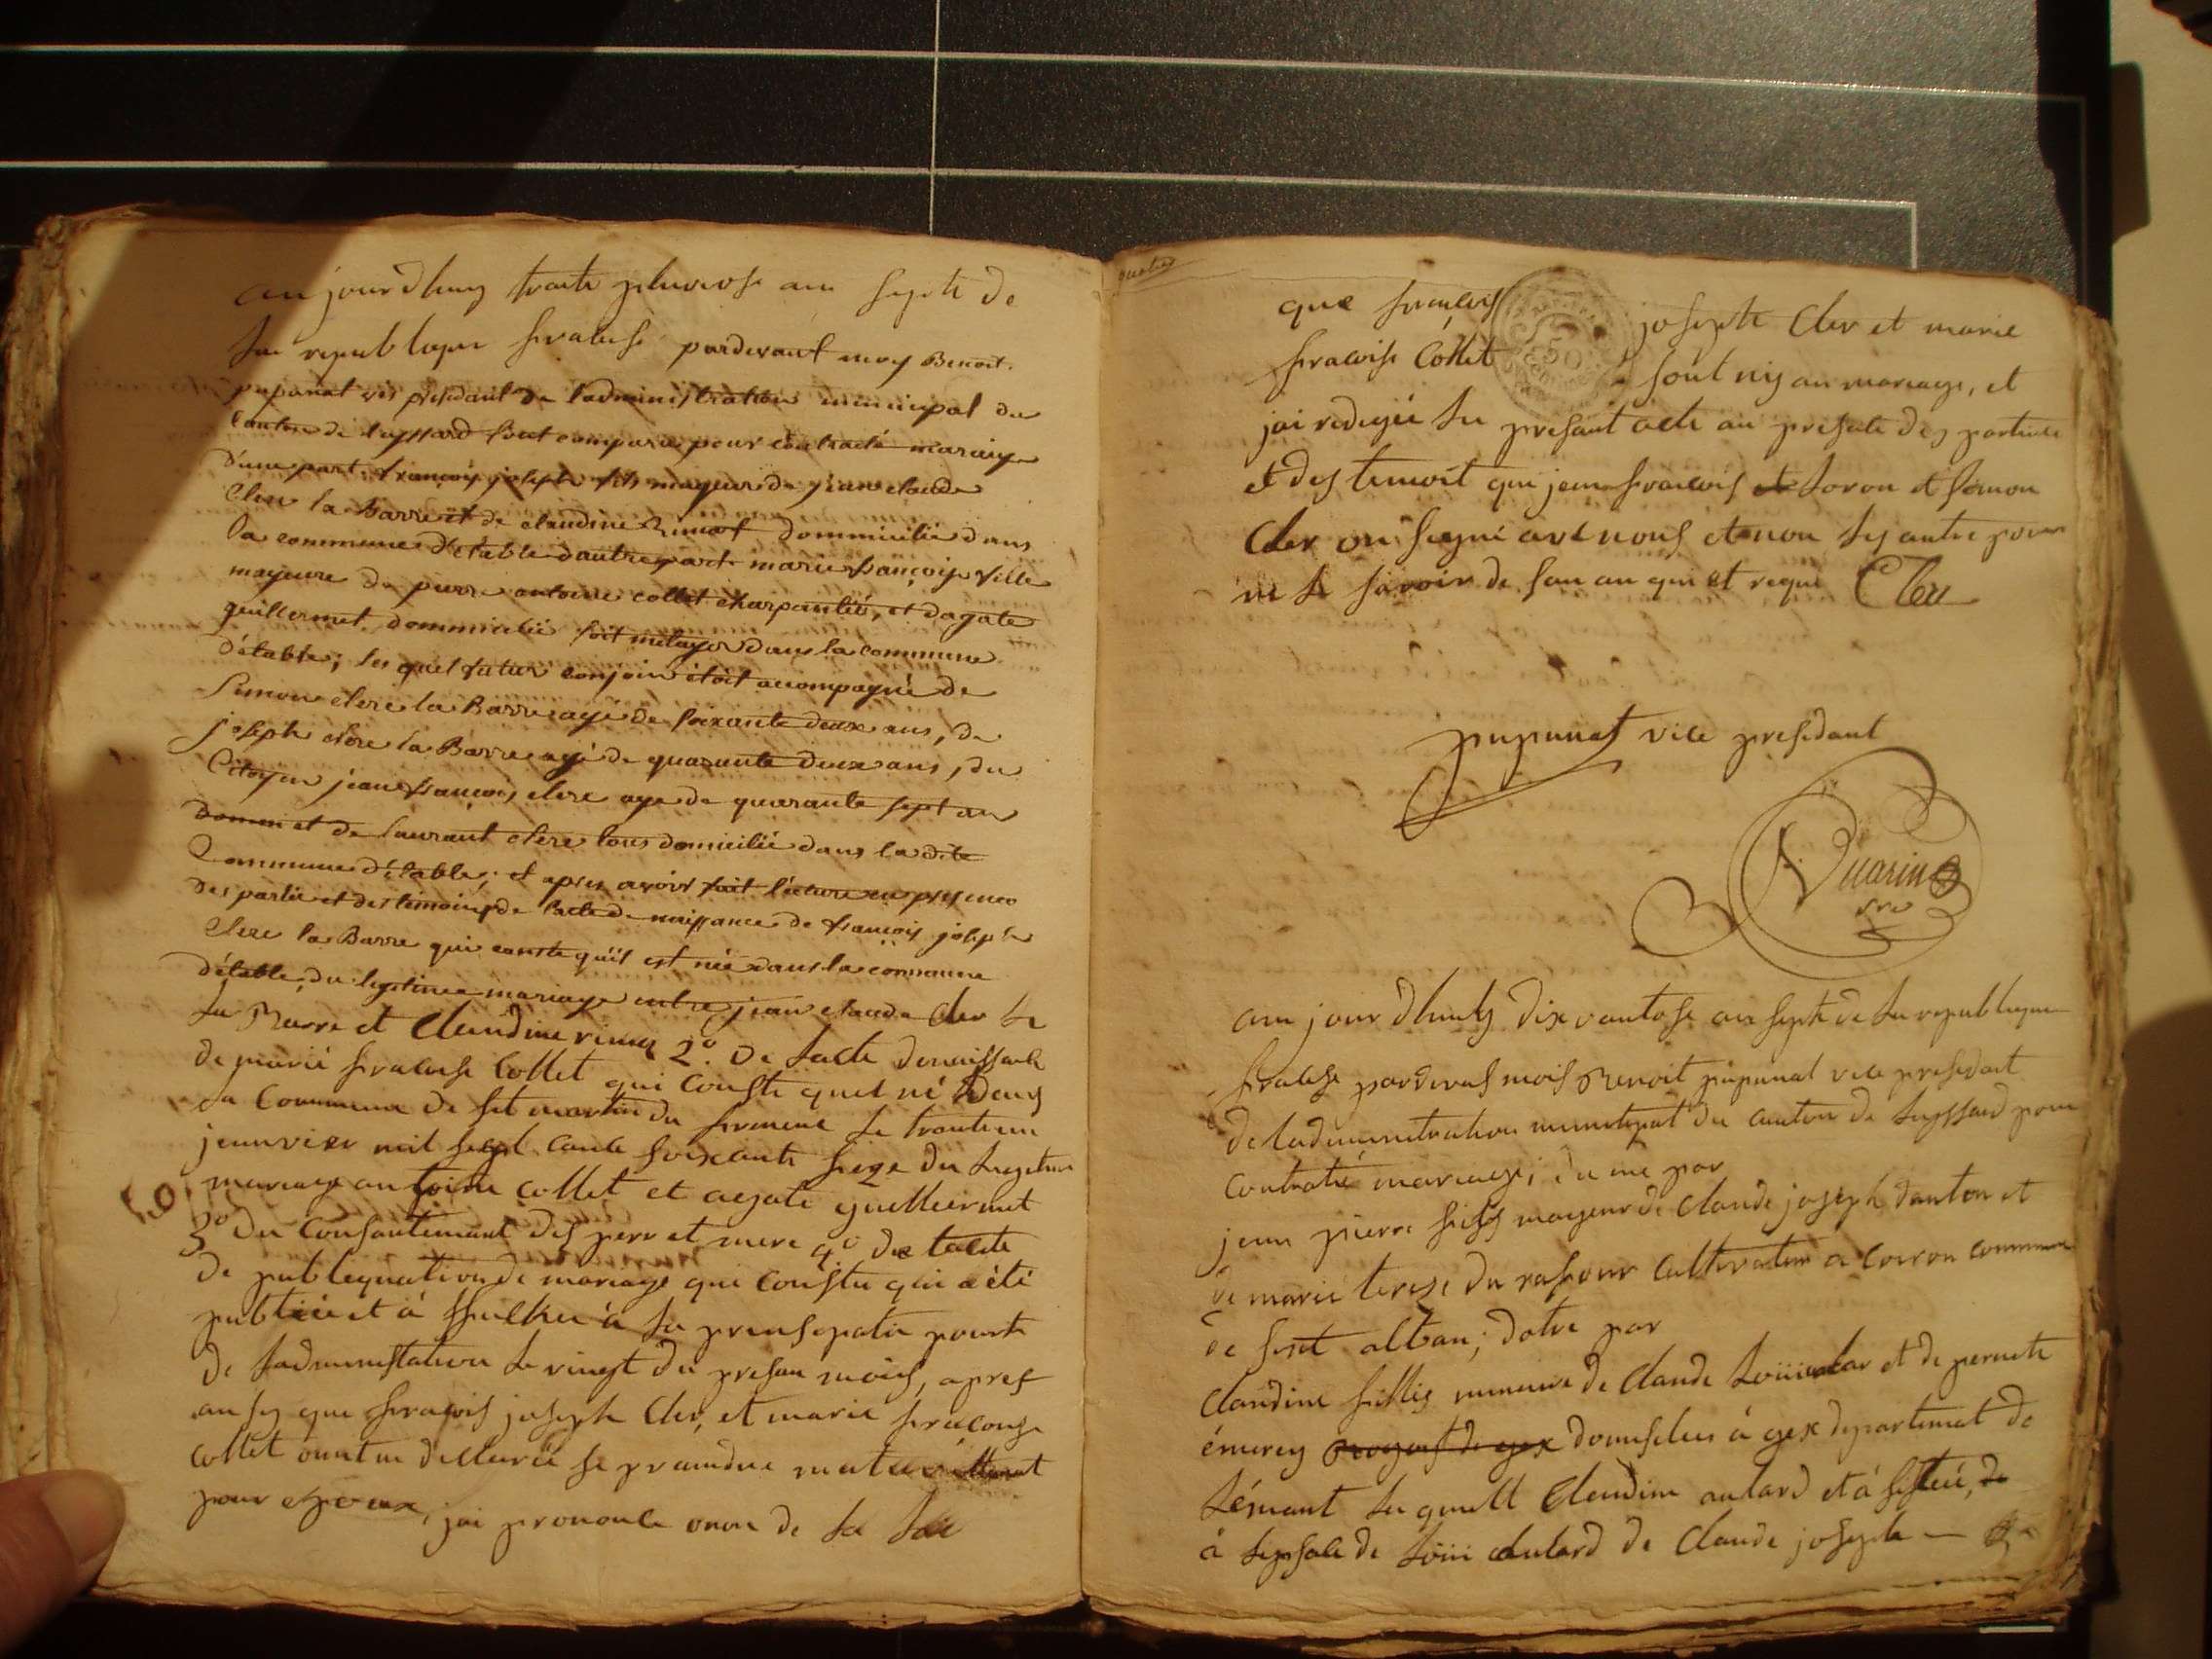 aujourdhuy trante pluviose ain septe de
la republique francese pardevant moy Benoit.
pupunat vis presidant de l'administration municipal du
Canton de layssard sont comparu pour contracté mariage
d'une part, françois joseph fils mayeur de jean claude
Clerc la Barre et de claudine Rimos dommicilié dans
la commune d'étable d'autre part marie françoise fille
mayeure de pierre antoine collet charpantié, et d'agate
guillermet dommicilié dans la commune
d'étable; les quel futur conjoin étoit acompagné de
Simon clerc la Barre agé de soixante deux ans, de
joseph clerc la Barre agé de quarante deux ans, du
Citoyen jean françois clerc age de quarante sept an
et de laurant clerc tous domicilié dans la dite
Commune d'étable; et apres avoir fait lecture en presence
des partie et des témoins de l'acte de naissance de françois joseph
Clerc la Barre qui conste qu'il est née dans la commune
d'étable, du legitime mariage entre jean claude Cler
la Barre et Claudine rimos 2º. De lacte denaissanse
de marie fracoise Collet qui Conste quel né dans
la Commune de sit martin du le trante un
jeanvier mil sept cante soixante seze du
mariage antoine collet et agate guilliermet
3º du Consantemant des perr et mere 4º du lacte
de publiquation de mariage qui conste qui a été
publié et à fficher à la prensipale pourte
de ladminustation le vingt du presan mois, apres
ansy que fracois joseph Cler, et marie fracouse
collet
pour epoux, jai pronouce onon de la loi
quatre
que francois joseph Cler et marie
fracoise Collet sont nis an mariage, et
jai redigée le presant acte an presate des partiées
et des temoit qui jean fracois et loron et simon
Cler on signé avé nous et non les autre pour
ne le savoir de fair an qui et reque Cler
pupunat vice presidant
Vuarin
sre
aujourdhuiy dix vantose an septe de la republique
fracese pardevas mois Benoit pupunat vice presidant
de ladminitration municipal du canton de layssard pour
contratié mariage; du ne par
jean pierre fils mayeur de Claude joseph danton et
de marie terese du rafour cultivateur a coiron commune
de sint alban; dotre par
Claudine fillis mineure de Claude et de pernete
émerey domisiliés à gex departemat do
Lémant la quelle Claudine et à sistée, de
à lepsale de de Claude joseph